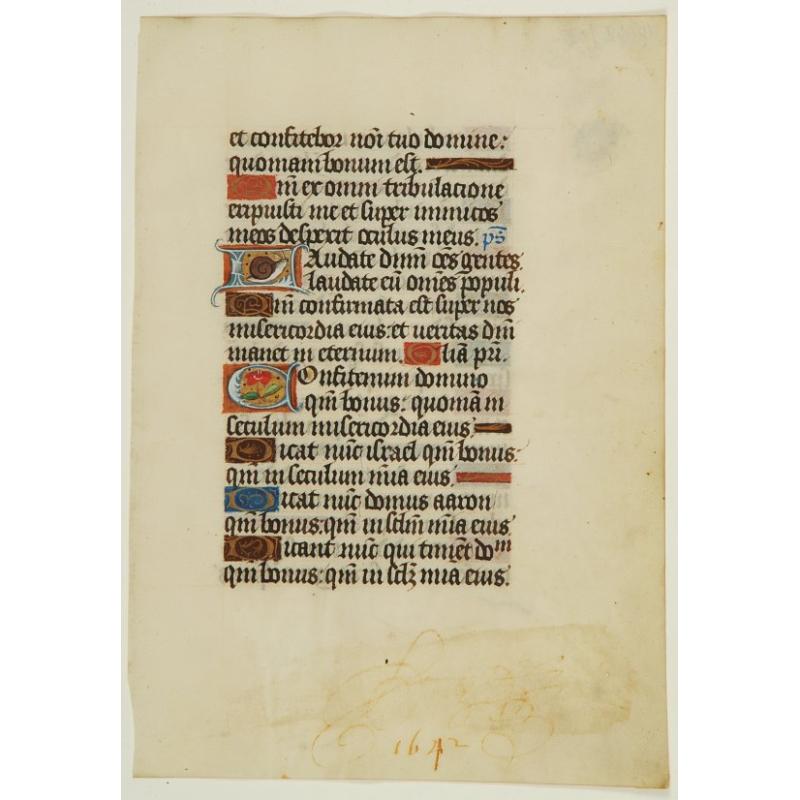 et confitebor noĩ tuo domine:
quoniam bonum est.
Qm̃ ex omni tribulacione
eripuisti me et super inimicos
meos despexit oculus meus. ps̃
Laudate dñm oẽs gentes.
laudate eũ omẽs populi.
Qm̃ confirmata est super nos
misericordia eius: et veritas dñi
manet in eternum. Gl̃ia pr̃i.
Confitemini domino
qm̃ bonus: quoniã in
seculum misericordia eius
Dicat nũc israel qm̃ bonus:
qm̃ in seculum mĩa eius.
Dicat nũc domus aaron
qm̃ bonus: qm̃ in sclm̃ mĩa eius
Dicant nũc qui timẽt doᵐ
qm̃ bonus: qm̃ in sclꝫ mĩa eius.
1642